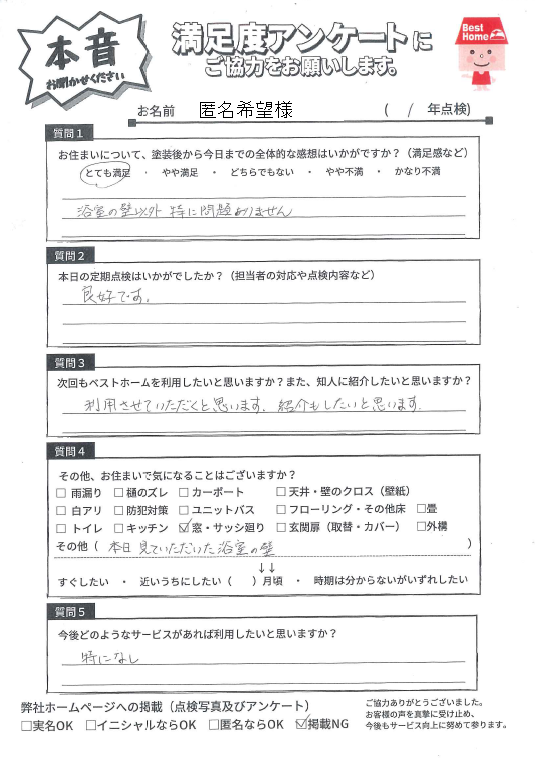 本音
お聞かせください
満足度アンケートに
ご協力をお願いします。
Best
Home
お名前 匿名希望様 ( / 年点検)
質問1
お住まいについて、塗装後から今日までの全体的な感想はいかがですか？（満足感など）
とても満足 ・ やや満足 ・ どちらでもない ・ やや不満 ・ かなり不満
浴室の壁以外 特に問題ありません
質問2
本日の定期点検はいかがでしたか？（担当者の対応や点検内容など）
良好です。
質問3
次回もベストホームを利用したいと思いますか？また、知人に紹介したいと思いますか？
利用させていただくと思います。紹介もしたいと思います。
質問4
その他、お住まいで気になることはございますか？
□ 雨漏り □ 樋のズレ □ カーポート □ 天井・壁のクロス（壁紙）
□ 白アリ □ 防犯対策 □ ユニットバス □ フローリング・その他床 □畳
□ トイレ □ キッチン ☑ 窓・サッシ廻り □ 玄関扉（取替・カバー） □外構
その他（ 本日 見ていただいた 浴室の壁 ）
↓↓
すぐしたい ・ 近いうちにしたい（ ）月頃 ・ 時期は分からないがいずれしたい
質問5
今後どのようなサービスがあれば利用したいと思いますか？
特になし
弊社ホームページへの掲載（点検写真及びアンケート）
□実名OK □イニシャルならOK □匿名ならOK ☑掲載NG
ご協力ありがとうございました。
お客様の声を真摯に受け止め、
今後もサービス向上に努めて参ります。